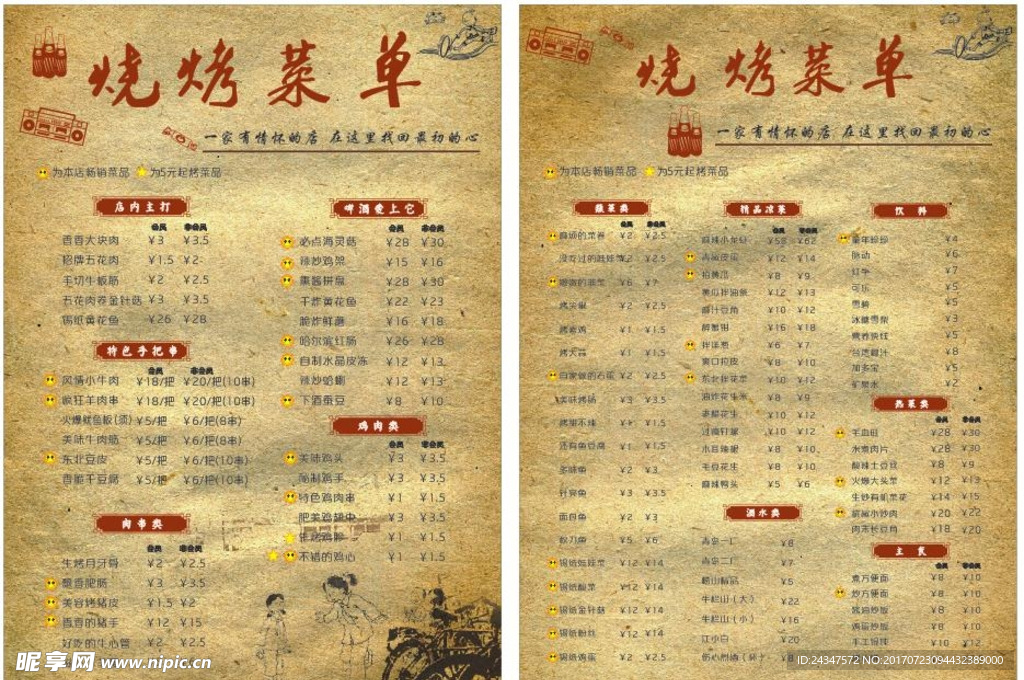 烧烤菜单
一家有情怀的店 在这里找回最初的心
为本店畅销菜品 为5元起烤菜品
店内主打
会员 非会员
香香大块肉 ¥3 ¥3.5
招牌五花肉 ¥1.5 ¥2
手切牛板筋 ¥2 ¥2.5
五花肉卷金针菇 ¥3 ¥3.5
锡纸黄花鱼 ¥26 ¥28
特色手把串
会员 非会员
风情小牛肉 ¥18/把 ¥20/把(10串)
疯狂羊肉串 ¥18/把 ¥20/把(10串)
火爆鱿鱼板(须) ¥5/把 ¥6/把(8串)
美味牛肉筋 ¥5/把 ¥6/把(8串)
东北豆皮 ¥5/把 ¥6/把(10串)
香脆干豆腐 ¥5/把 ¥6/把(10串)
肉串类
会员 非会员
生烤月牙骨 ¥2 ¥2.5
飘香肥肠 ¥3 ¥3.5
美容烤猪皮 ¥1.5 ¥2
香香的猪手 ¥12 ¥15
好吃的牛心管 ¥2 ¥2.5
啤酒爱上它
会员 非会员
必点海灵菇 ¥28 ¥30
辣炒鸡架 ¥15 ¥16
熏酱拼盘 ¥28 ¥30
干炸黄花鱼 ¥22 ¥23
脆炸鲜蘑 ¥16 ¥18
哈尔滨红肠 ¥26 ¥28
自制水晶皮冻 ¥12 ¥13
辣炒蛤蜊 ¥12 ¥13
下酒蚕豆 ¥8 ¥10
鸡肉类
会员 非会员
美味鸡头 ¥3 ¥3.5
秘制鸡手 ¥3 ¥3.5
特色鸡肉串 ¥1 ¥1.5
肥美鸡翅中 ¥3 ¥3.5
生烤鸡胗 ¥1 ¥1.5
不错的鸡心 ¥1 ¥1.5
昵享网 www.nipic.cn
烧烤菜单
一家有情怀的店 在这里找回最初的心
为本店畅销菜品 为5元起烤菜品
蔬菜类
¥2 ¥2.5
¥2 ¥2.5
¥6 ¥7
烤尖椒 ¥2 ¥2.5
烤素鸡 ¥1 ¥1.5
烤大蒜 ¥1 ¥1.5
自家做的石蛋 ¥2 ¥2.5
美味烤肠 ¥3 ¥3.5
¥1 ¥1.5
还有鱼豆腐 ¥1 ¥1.5
多味鱼 ¥2 ¥3
针亮鱼 ¥3 ¥3.5
面包鱼 ¥2 ¥3
秋刀鱼 ¥5 ¥6
锡纸娃娃菜 ¥12 ¥14
锡纸酸菜 ¥12 ¥14
锡纸金针菇 ¥12 ¥14
锡纸粉丝 ¥12 ¥14
锡纸鸡蛋 ¥2 ¥2.5
精品凉菜
会员 非会员
麻辣小龙虾 ¥58 ¥62
青椒皮蛋 ¥12 ¥14
拍黄瓜 ¥8 ¥9
黄瓜拌油条 ¥12 ¥13
¥10 ¥12
醉蟹钳 ¥16 ¥18
拌拌葱 ¥6 ¥7
爽口拉皮 ¥8 ¥10
东北拌花菜 ¥10 ¥12
油炸花生米 ¥8 ¥9
老醋花生 ¥10 ¥12
¥10 ¥12
¥8 ¥10
毛豆花生 ¥8 ¥10
麻辣鸭头 ¥5 ¥6
酒水类
¥8
¥7
崂山精品 ¥5
牛栏山(大) ¥22
牛栏山(小) ¥16
江小白 ¥20
饮料
童年珍珍 ¥4
脉动 ¥6
红牛 ¥7
可乐 ¥5
雪碧 ¥5
冰糖雪梨 ¥3
营养快线 ¥5
¥8
加多宝 ¥5
矿泉水 ¥2
热菜类
会员 非会员
毛血旺 ¥28 ¥30
水煮肉片 ¥28 ¥30
酸辣土豆丝 ¥8 ¥9
火爆大头菜 ¥12 ¥13
生炒有机菜花 ¥14 ¥15
农家小炒肉 ¥20 ¥22
肉末长豆角 ¥18 ¥20
主食
会员 非会员
煮方便面 ¥8 ¥10
炒方便面 ¥8 ¥10
酱油炒饭 ¥8 ¥10
鸡蛋炒饭 ¥8 ¥10
手工锅烙 ¥10 ¥12
ID:24347572 NO:20170723094432389000